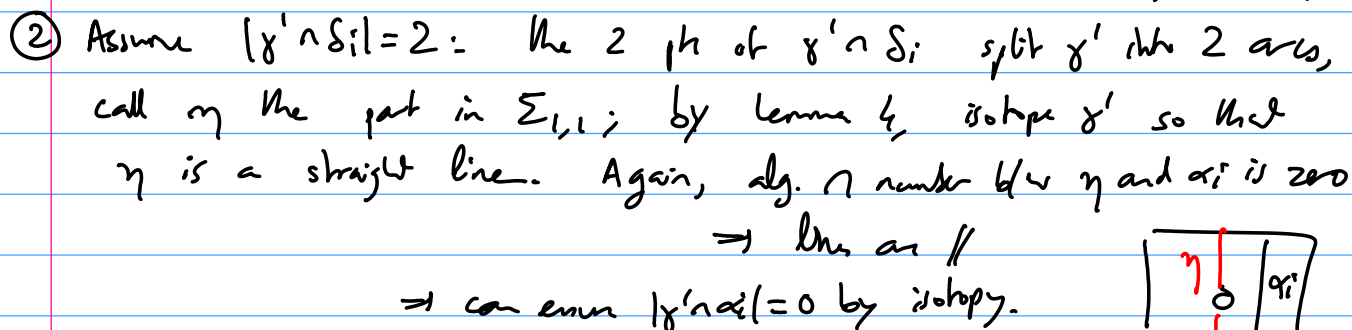 ② Assume |γ'∩δi|=2: the 2 pts of γ'∩δi split γ' into 2 arcs,
call η the part in Σ1,1; by lemma 4, isotope γ' so that
η is a straight line. Again, alg. ∩ number b/w η and αi is zero
⇒ lines are //
⇒ can ensure |γ'∩αi|=0 by isotopy.
η αi